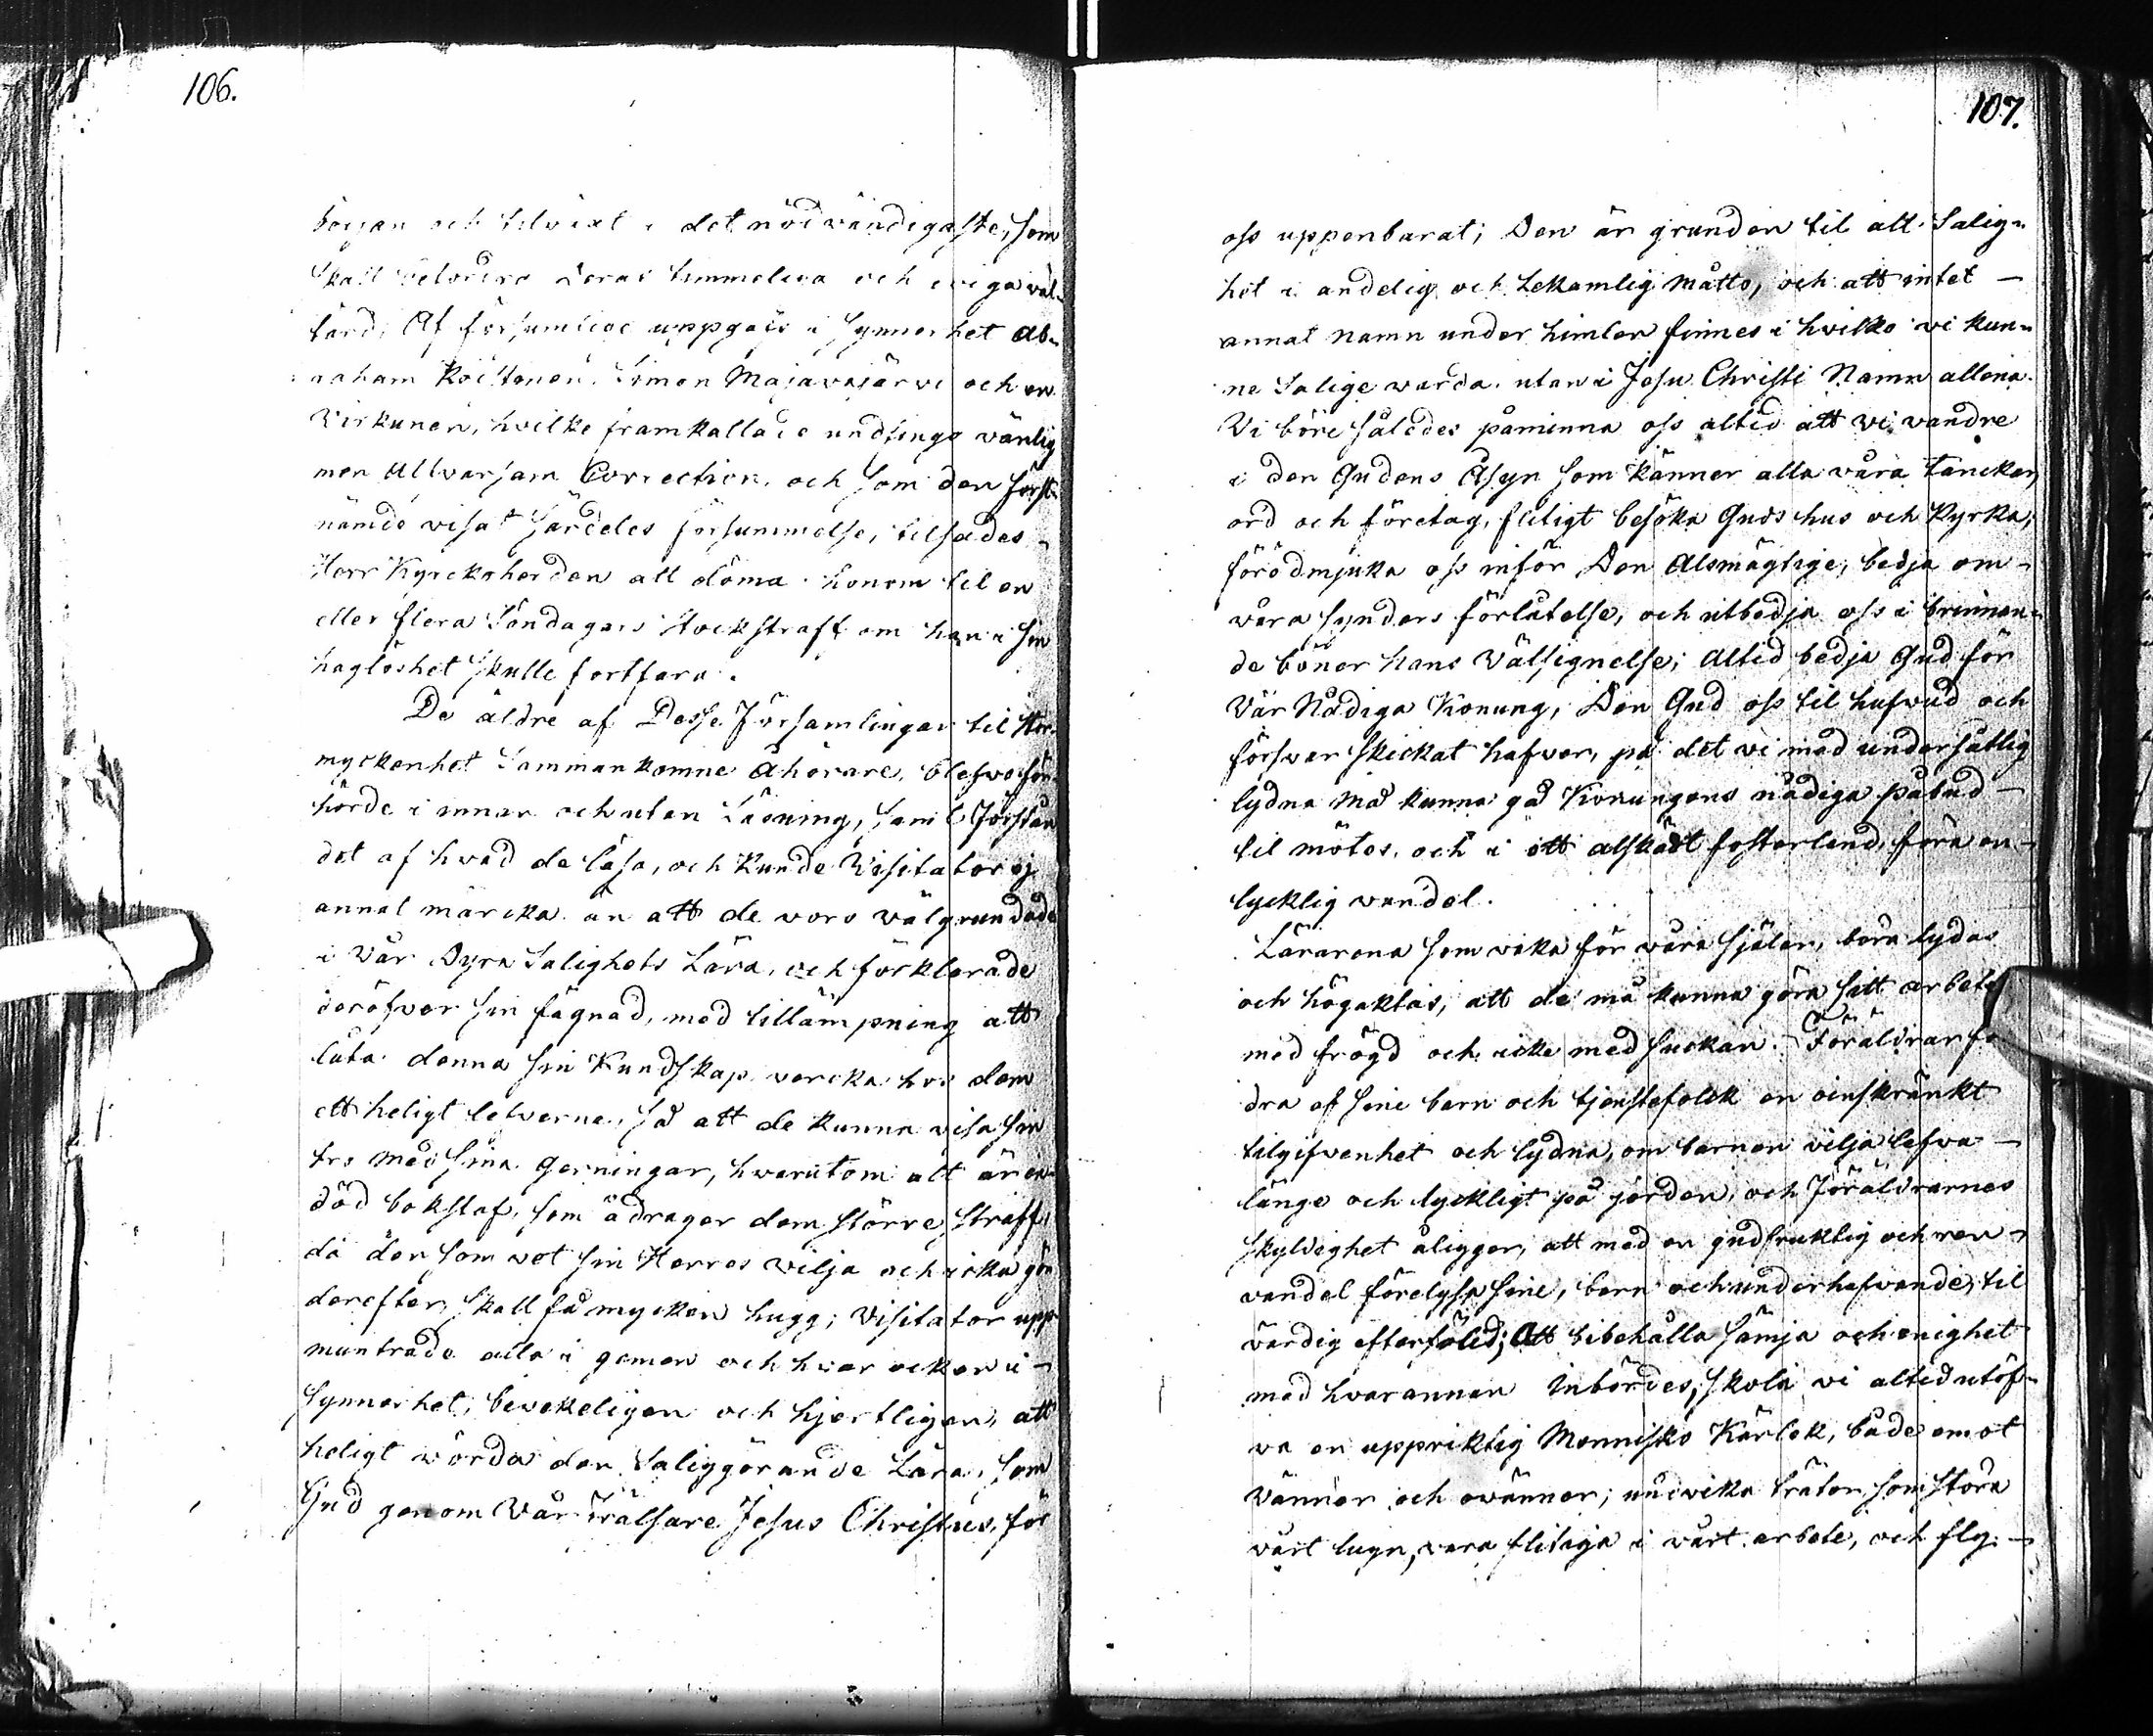 106.
början och tilväxt i det nödvändigaste, som
skall befordra deras himmelska och eviga väl-
färd, Af försumlige uppgafs i synnerhet Ab-
raham Simon Majavajärvi och en
Virkunen, hvilke framkallade undfingo vänlig
men allvarsam Correction, och som den först-
nämde visat särdeles försummelse, tilsades
Herr Kyrckoherden att döma honom til en
eller flera Söndagars stockstraff om han i sin
haglöshet skulle fortfara.
De äldre af Desse Församlingar til stor
myckenhet Sammankomne åhörare, blefvo för-
hörde i innan och utan Läsning, samt Förstån
det af hvad de läsa, och kunde Visitator ej
annat märcka än att de voro välgrundade
i Vår Dyra Salighets Lära, och förklarade
deröfver sin fägnad, med tillämpning att
låta denna sin Kundskap vercka hos dem
ett heligt lefverne, så att de kunna visa sin
tro med sina Gerningar, hvarutom alt är en
död bokstaf, som ådrager dem större straff,
då den som vet sin Herres vilja och icke gör
derefter, skall få mycken hugg; Visitator upp
muntrade alla i gemen och hvar och en i
synnerhet, bevekeligen och hjertligen, att
heligt wörda den Saliggörande Lära, som
Gud genom Vår Frälsare Jesus Christus, för
107.
oss uppenbarat; Den är grunden til all Salig-
het i andelig och Lekamlig måtto, och att intet
annat namn under himlen finnes i hvilko vi kun-
ne Salige warda, utan i Jesu Christi Namn allena.
Vi böre således påminna oss altid att vi vandre
i den Gudens Åsyn som känner alla våra tanckar,
ord och företag, flitigt besöka Guds hus och Kyrka,
förödmjuka oss inför Den Alsmägtige, bedja om
våra synders förlåtelse, och utbedja oss i brinnan-
de böner hans Välsignelse; Altid bedja Gud för
Vår Nådiga Konung, Den Gud oss til hufvud och
försvar skickat hafver, på det vi med undersåtlig
lydna må kunna gå Konungens nådiga påbud
til mötes, och i ett älskadt fosterland, föra en
lycklig vandel.
Lärarena som vaka för våra själar, böra lydas
och högaktas, att de må kunna göra sitt arbete
med frögd och icke med suckan. Föräldrar fo
dra af sine barn och tjenstefolck en oinskränkt
tilgifvenhet och lydna, om barnen vilja lefva
länge och lyckligt på jorden, och Föräldrarnes
skyldighet åligger, att med en gudfruktig och ren
vandel förelysa sine, barn och underhafvande, til
värdig efterföljd; Att bibehålla sämja och enighet
med hvarannan inbördes, skola vi altid utöf-
va en uppriktig Mennisko Kärlek, både emot
vänner och ovänner; undvika trätor som störa
vårt lugn, vara flitiga i vårt arbete, och fly